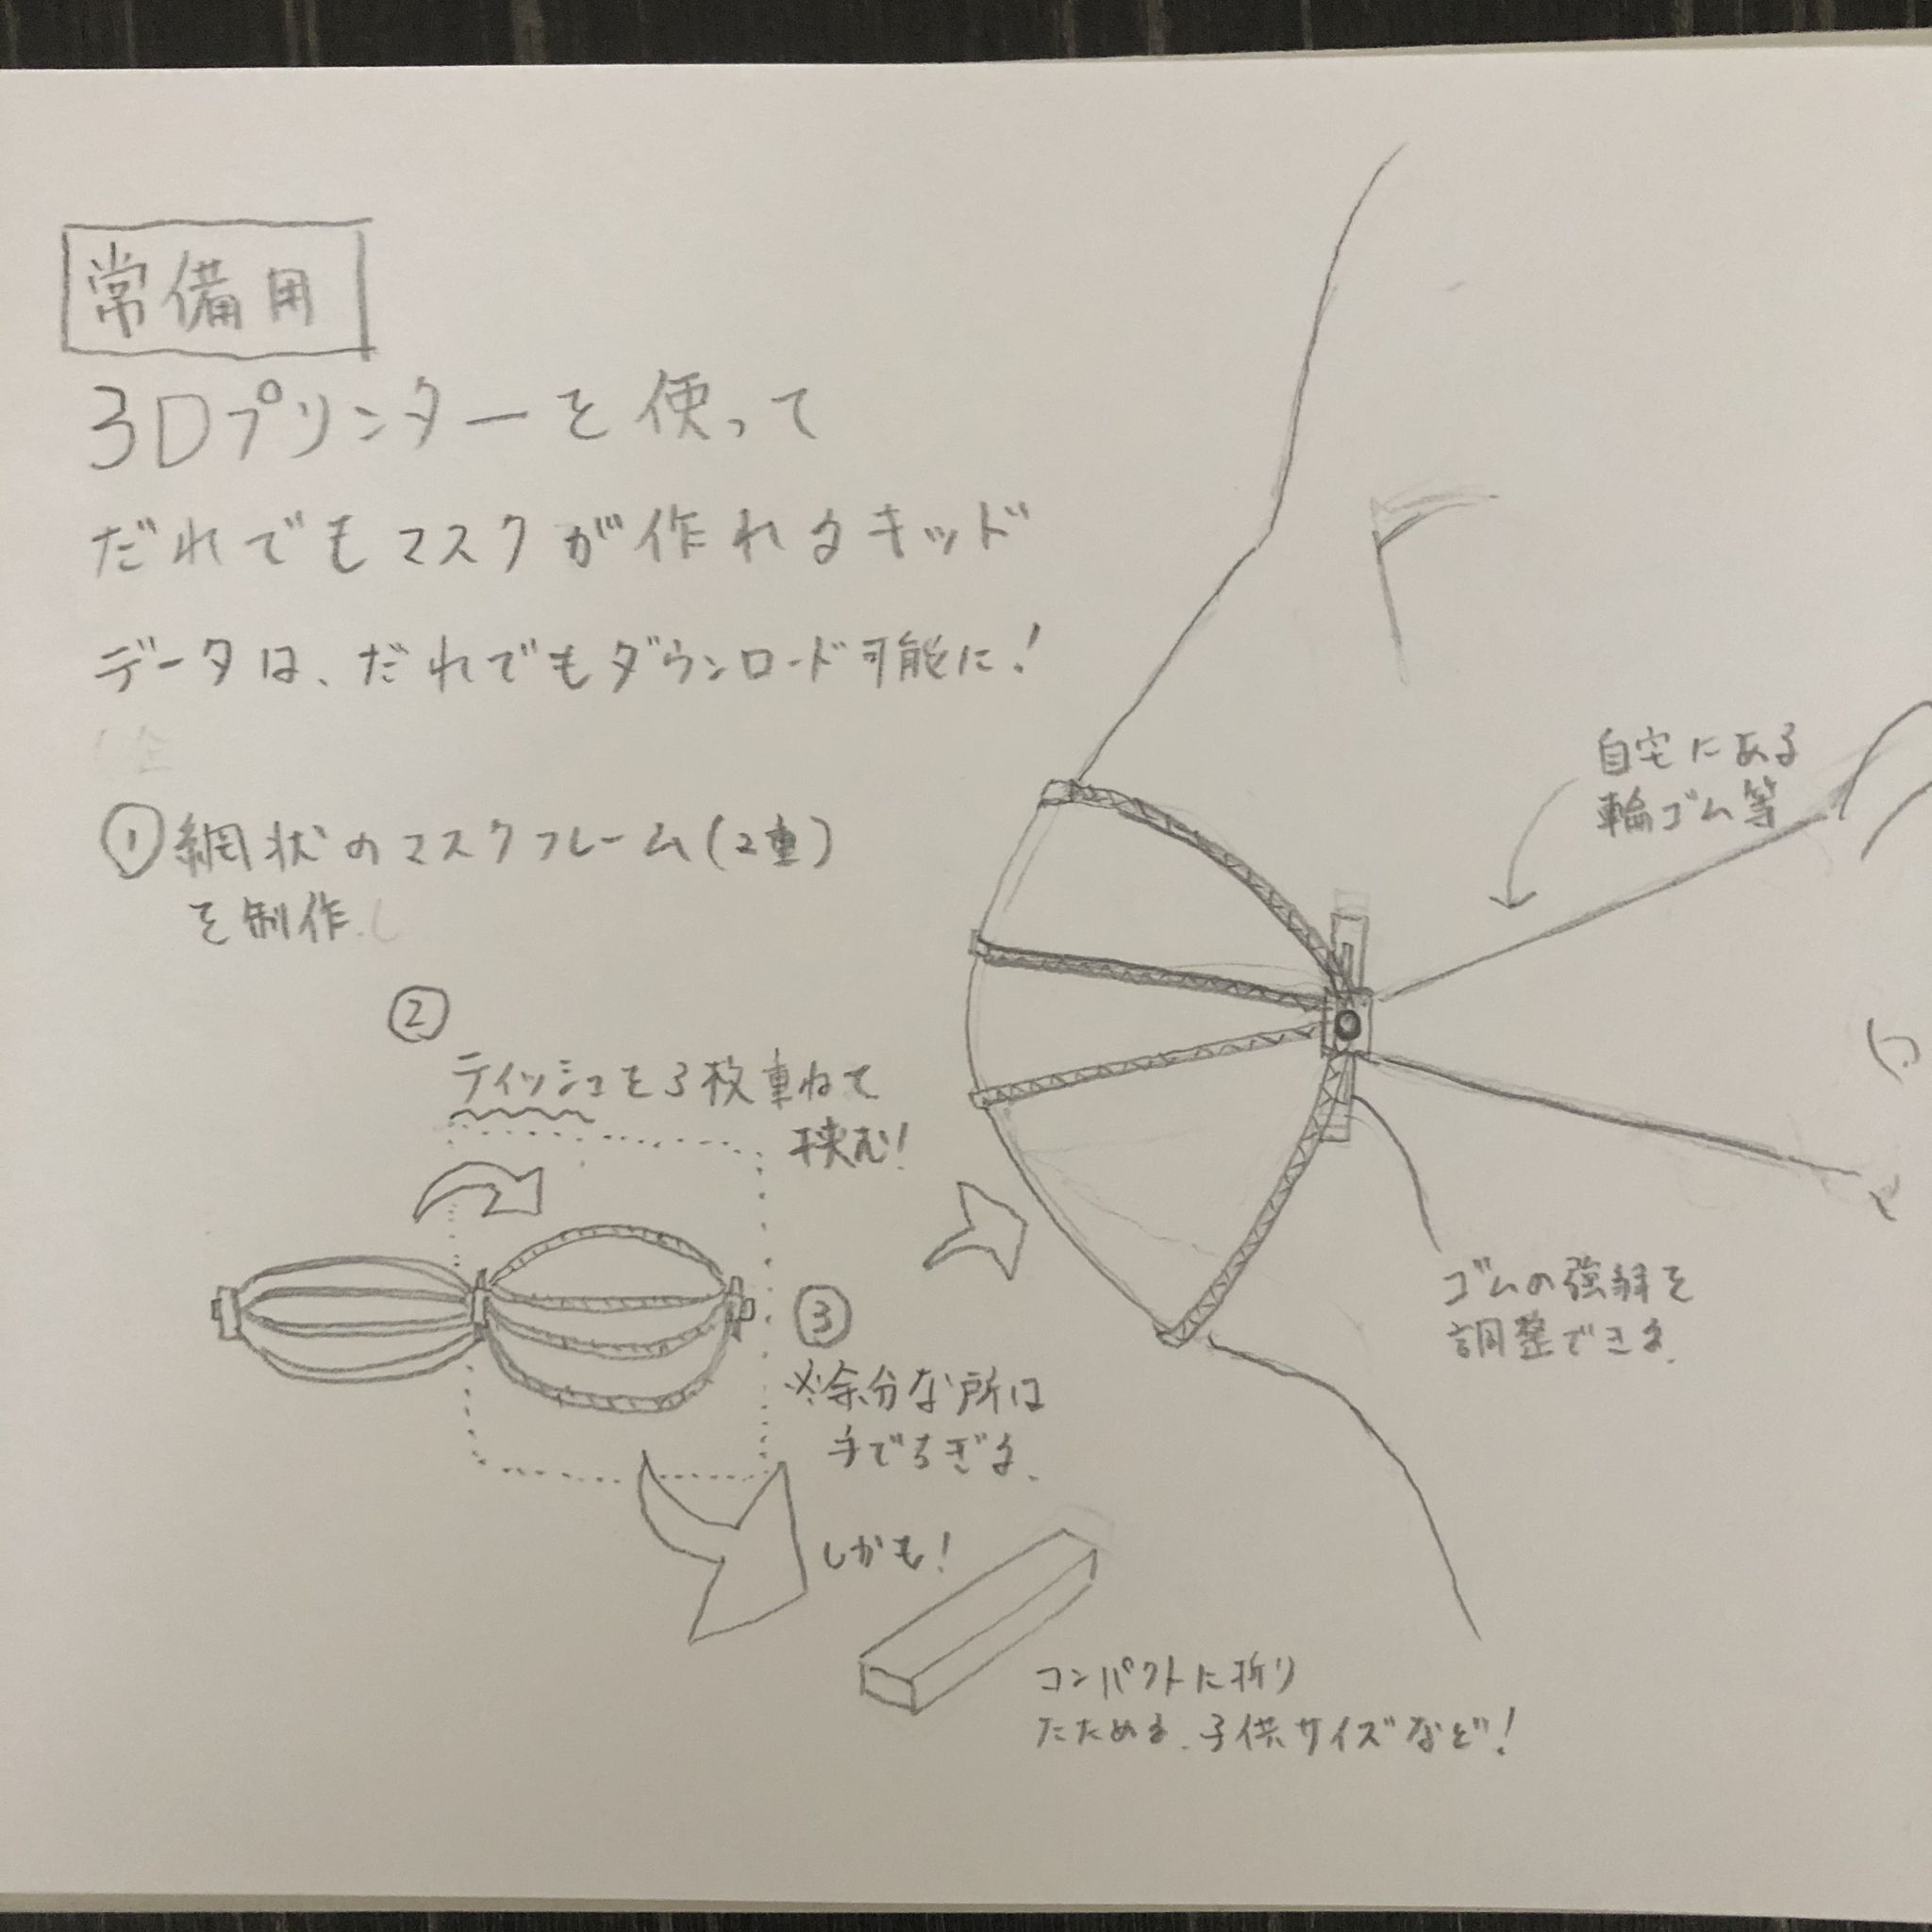 常備用
3Dプリンターを使って
だれでもマスクが作れるキッド
データは、だれでもダウンロード可能に!
① 網状のマスクフレーム(2重)
を制作.し
②
ティッシュを3枚重ねて
挟む!
③
※余分な所は
手でちぎる、
自宅にある
輪ゴム等
ゴムの強弱を
調整できる.
しかも!
コンパクトに折り
たためる.子供サイズなど!